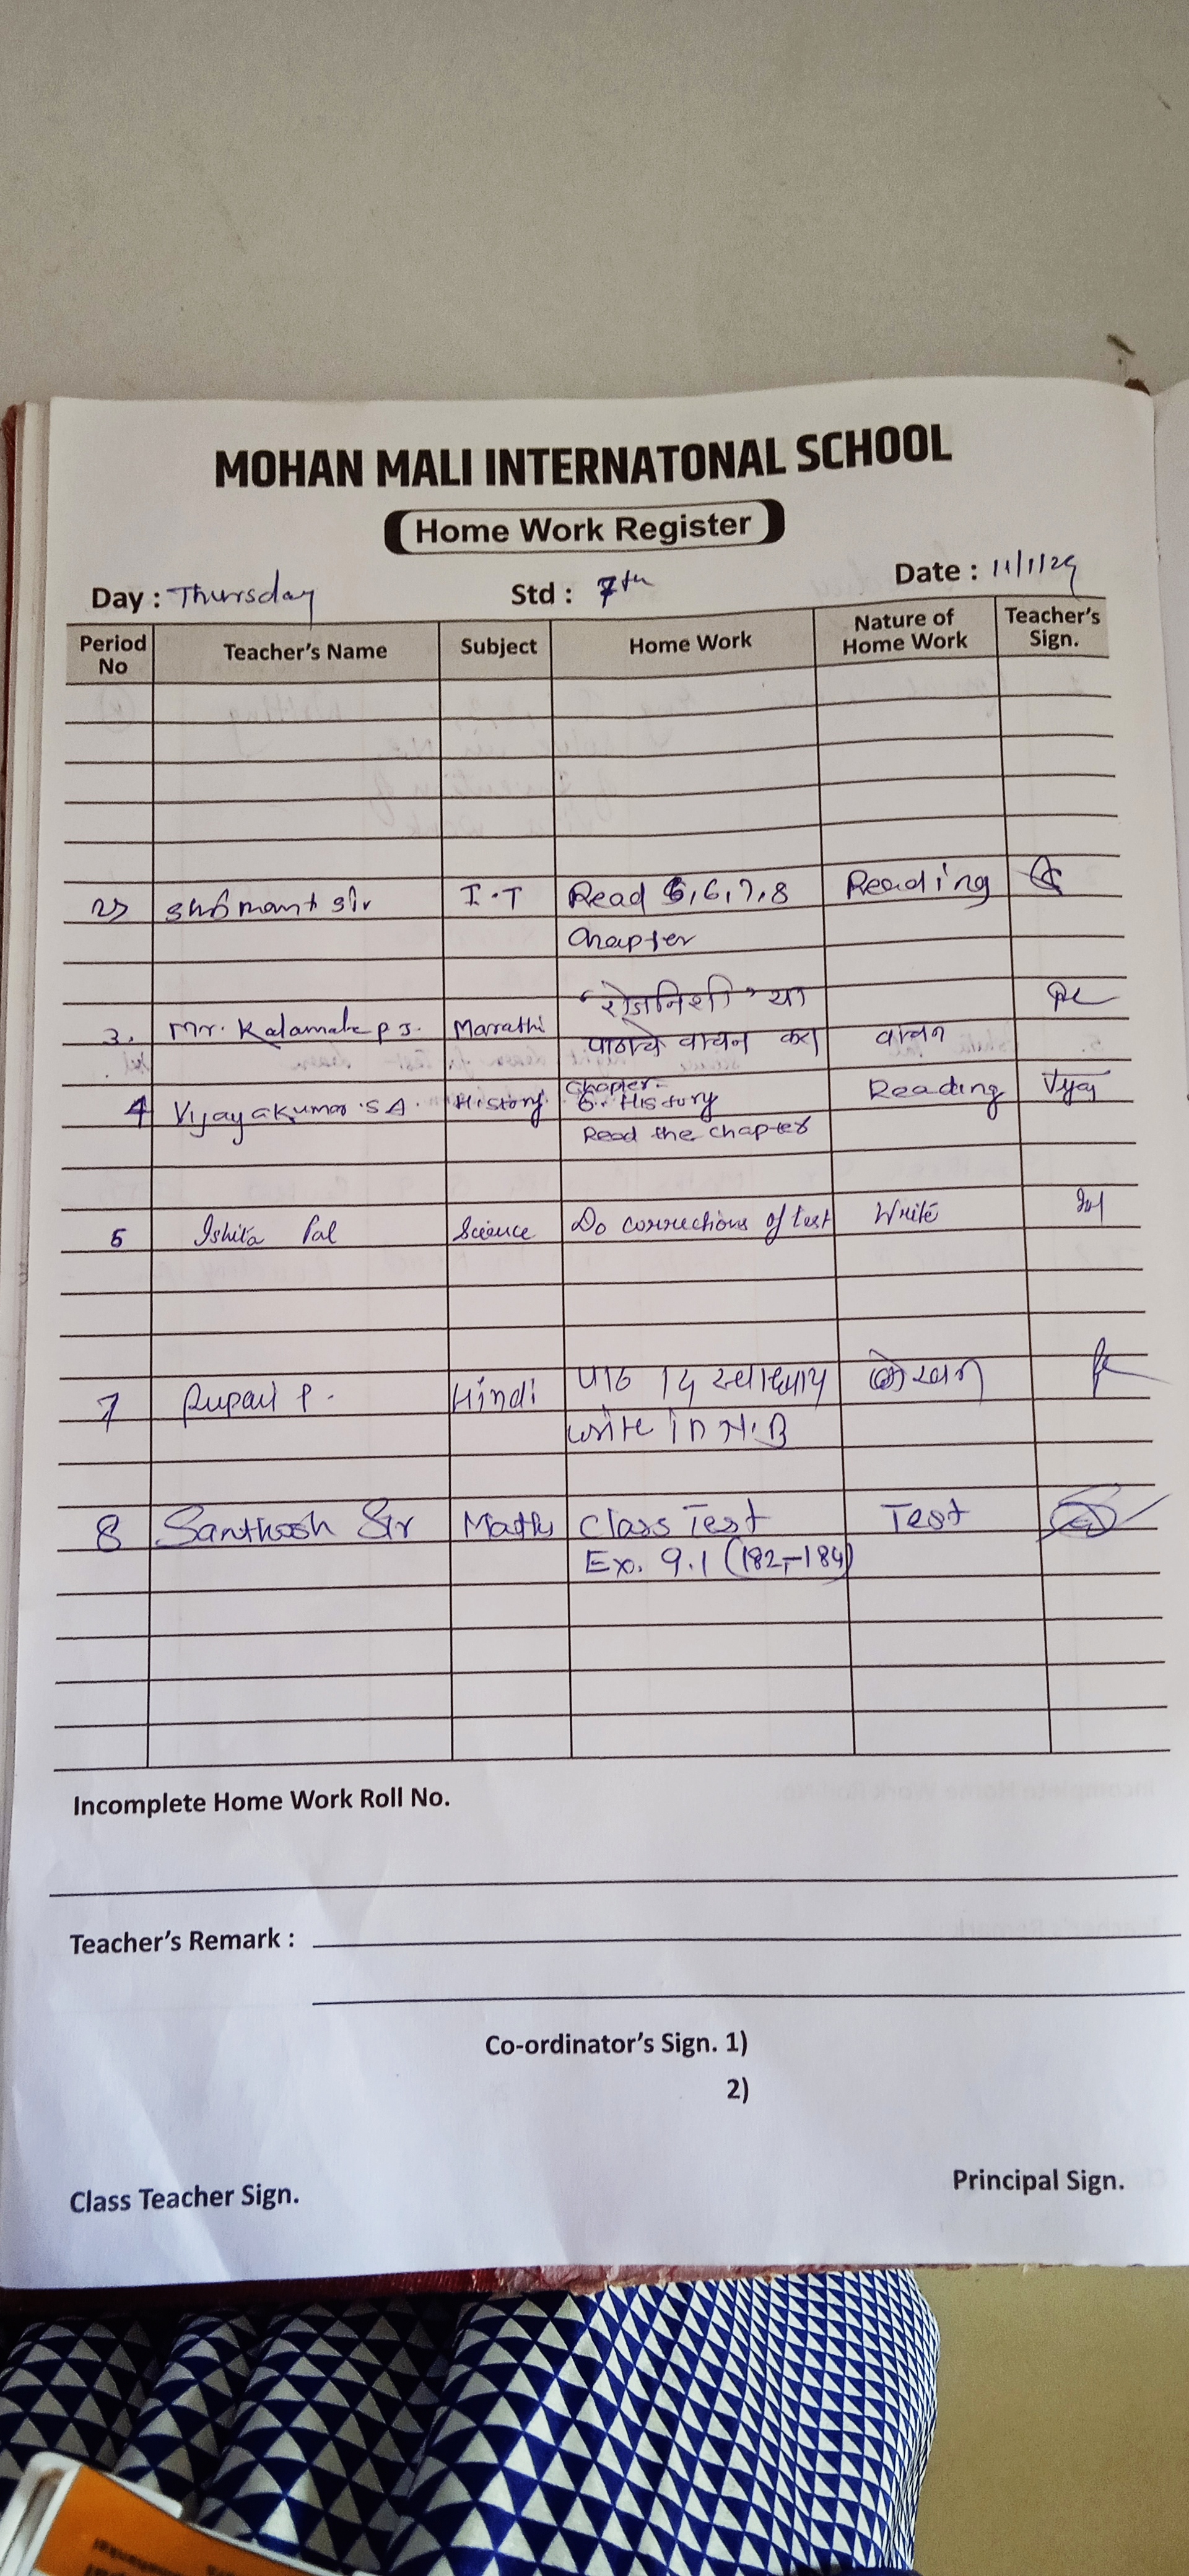 MOHAN MALI INTERNATONAL SCHOOL
Home Work Register
Day : Thursday Std : 7th Date : 11/1/24
Period No Teacher's Name Subject Home Work Nature of Home Work Teacher's Sign.
2) I.T Read 5,6,7,8 Reading
Chapter
"रोजनिशी" या
3. Mr. Kalamale P J. Marathi पाठाचे वाचन करा वाचन
Chapter-
4 Vijayakumar S A. History 6. History Reading Vijay
Read the chapter
5 Ishika Pal Science Do corrections of test Write
7 Rupali P. Hindi पाठ 14 स्वाध्याय लेखन
write in N.B
8 Santhosh Sir Maths Class Test Test
Ex. 9.1 (182-184)
Incomplete Home Work Roll No.
Teacher's Remark :
Co-ordinator's Sign. 1)
2)
Class Teacher Sign. Principal Sign.